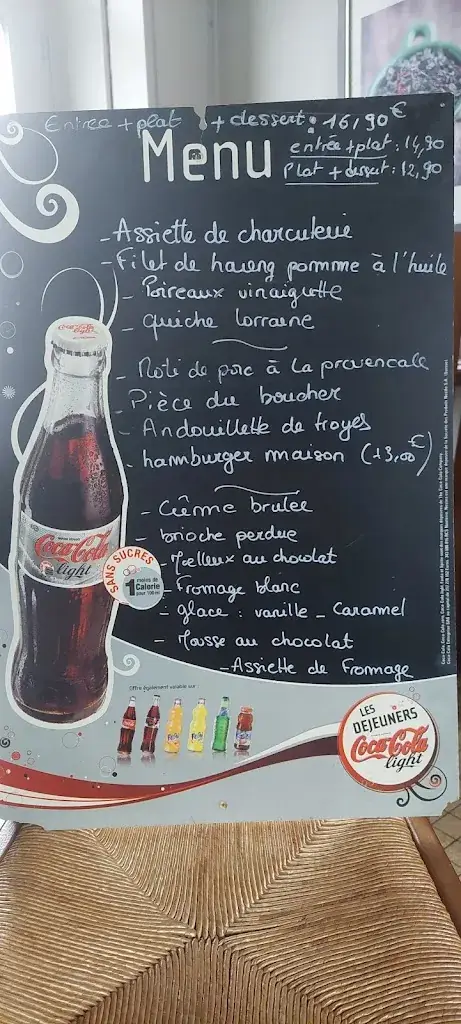 Entrée + plat + dessert : 16,90€
Menu
entrée + plat : 14,90
Plat + dessert : 12,90
- Assiette de charcuterie
- Filet de hareng pomme à l'huile
- Poireaux vinaigrette
- quiche lorraine
- Roti de porc à la provencale
- Pièce du boucher
- Andouillette de troyes
- hamburger maison (+3,00€)
- Crême brulée
- brioche perdue
- Moelleux au chocolat
- Fromage blanc
- glace : vanille - caramel
- Mousse au chocolat
- Assiette de Fromage
Coca-Cola
light
Coca-Cola
light
SANS SUCRES
moins de
1 Calorie
pour 100ml
Offre également valable sur :
LES
DEJEUNERS
Coca-Cola
light